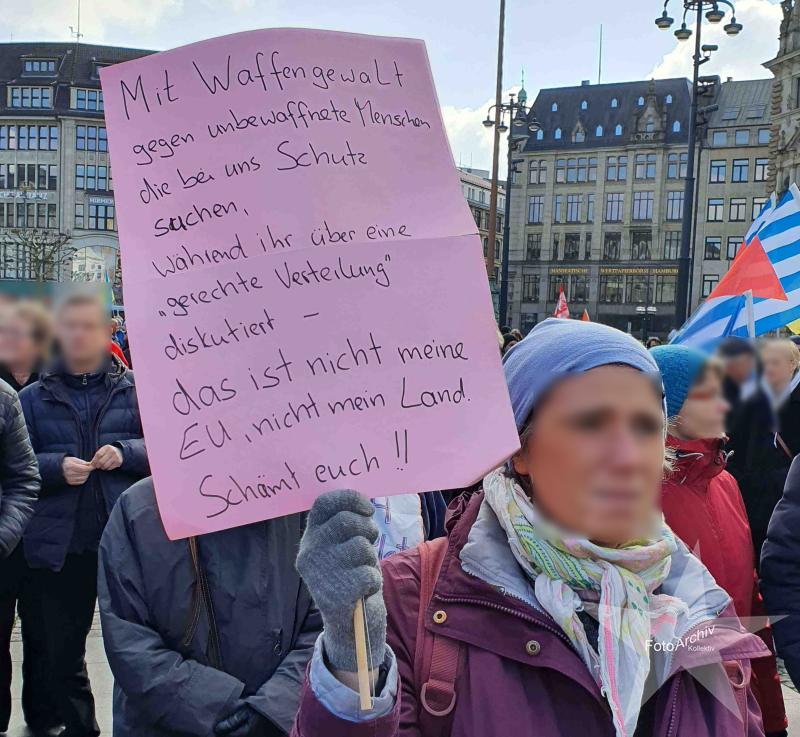 Mit Waffengewalt
gegen unbewaffnete Menschen
die bei uns Schutz
suchen,
während ihr über eine
„gerechte Verteilung"
diskutiert –
das ist nicht meine
EU, nicht mein Land.
Schämt euch!!
HANSEATISCHE WERTPAPIERBÖRSE HAMBURG
FotoArchiv
Kollektiv